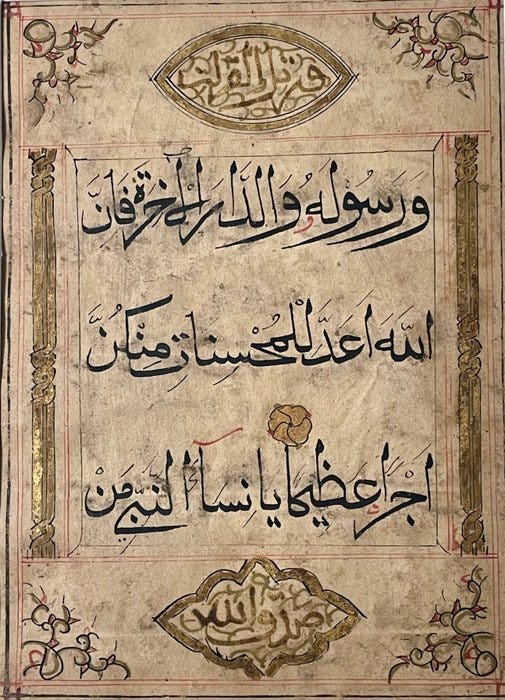 ورتل القرآن
وَرَسُولَهُ وَالدَّارَ الْآخِرَةَ فَإِنَّ
اللَّهَ أَعَدَّ لِلْمُحْسِنَاتِ مِنْكُنَّ
أَجْرًا عَظِيمًا يَا نِسَاءَ النَّبِيِّ مَنْ
صدق الله